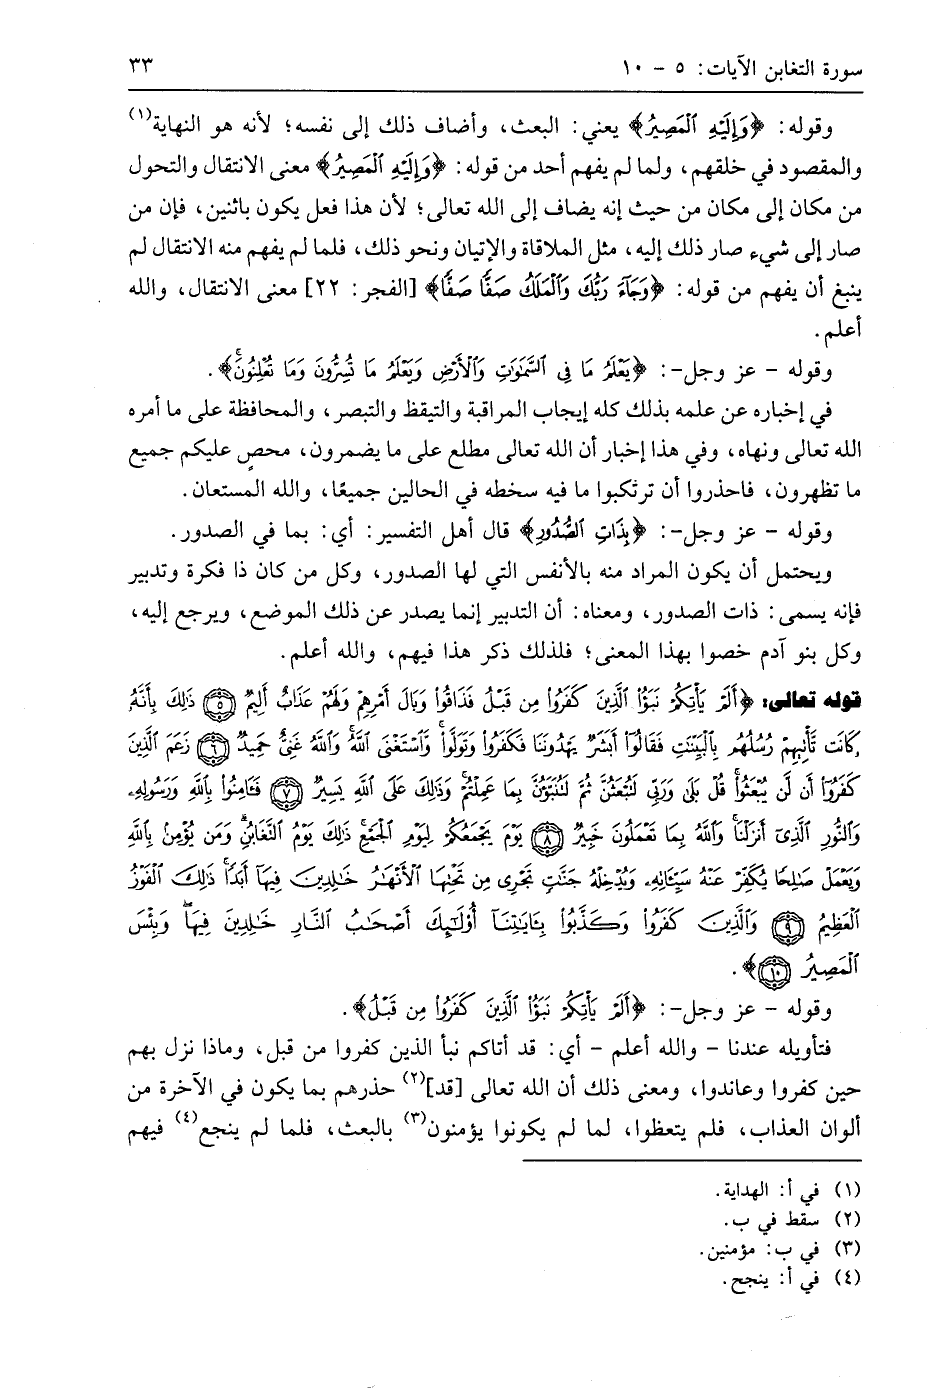 سورة التغابن الآيات: ٥ - ١٠ ٣٣
وقوله: ﴿وَإِلَيْهِ ٱلْمَصِيرُ﴾ يعني: البعث، وأضاف ذلك إلى نفسه؛ لأنه هو النهاية(١)
والمقصود في خلقهم، ولما لم يفهم أحد من قوله: ﴿وَإِلَيْهِ ٱلْمَصِيرُ﴾ معنى الانتقال والتحول
من مكان إلى مكان من حيث إنه يضاف إلى الله تعالى؛ لأن هذا فعل يكون باثنين، فإن من
صار إلى شيء صار ذلك إليه، مثل الملاقاة والإتيان ونحو ذلك، فلما لم يفهم منه الانتقال لم
ينبغ أن يفهم من قوله: ﴿وَجَآءَ رَبُّكَ وَٱلْمَلَكُ صَفًّا صَفًّا﴾ [الفجر: ٢٢] معنى الانتقال، والله
أعلم.
وقوله - عز وجل-: ﴿يَعْلَمُ مَا فِى ٱلسَّمَٰوَٰتِ وَٱلْأَرْضِ وَيَعْلَمُ مَا تُسِرُّونَ وَمَا تُعْلِنُونَۚ﴾.
في إخباره عن علمه بذلك كله إيجاب المراقبة والتيقظ والتبصر، والمحافظة على ما أمره
الله تعالى ونهاه، وفي هذا إخبار أن الله تعالى مطلع على ما يضمرون، محصٍ عليكم جميع
ما تظهرون، فاحذروا أن ترتكبوا ما فيه سخطه في الحالين جميعًا، والله المستعان.
وقوله - عز وجل-: ﴿بِذَاتِ ٱلصُّدُورِ﴾ قال أهل التفسير: أي: بما في الصدور.
ويحتمل أن يكون المراد منه بالأنفس التي لها الصدور، وكل من كان ذا فكرة وتدبير
فإنه يسمى: ذات الصدور، ومعناه: أن التدبير إنما يصدر عن ذلك الموضع، ويرجع إليه،
وكل بنو آدم خصوا بهذا المعنى؛ فلذلك ذكر هذا فيهم، والله أعلم.
قوله تعالى: ﴿أَلَمْ يَأْتِكُمْ نَبَؤُا۟ ٱلَّذِينَ كَفَرُوا۟ مِن قَبْلُ فَذَاقُوا۟ وَبَالَ أَمْرِهِمْ وَلَهُمْ عَذَابٌ أَلِيمٌ ٥ ذَٰلِكَ بِأَنَّهُۥ
كَانَت تَّأْتِيهِمْ رُسُلُهُم بِٱلْبَيِّنَٰتِ فَقَالُوٓا۟ أَبَشَرٌ يَهْدُونَنَا فَكَفَرُوا۟ وَتَوَلَّوا۟ۚ وَّٱسْتَغْنَى ٱللَّهُۚ وَٱللَّهُ غَنِىٌّ حَمِيدٌ ٦ زَعَمَ ٱلَّذِينَ
كَفَرُوٓا۟ أَن لَّن يُبْعَثُوا۟ۚ قُلْ بَلَىٰ وَرَبِّى لَتُبْعَثُنَّ ثُمَّ لَتُنَبَّؤُنَّ بِمَا عَمِلْتُمْۚ وَذَٰلِكَ عَلَى ٱللَّهِ يَسِيرٌ ٧ فَـَٔامِنُوا۟ بِٱللَّهِ وَرَسُولِهِۦ
وَٱلنُّورِ ٱلَّذِىٓ أَنزَلْنَاۚ وَٱللَّهُ بِمَا تَعْمَلُونَ خَبِيرٌ ٨ يَوْمَ يَجْمَعُكُمْ لِيَوْمِ ٱلْجَمْعِۖ ذَٰلِكَ يَوْمُ ٱلتَّغَابُنِۗ وَمَن يُؤْمِنۢ بِٱللَّهِ
وَيَعْمَلْ صَٰلِحًا يُكَفِّرْ عَنْهُ سَيِّـَٔاتِهِۦ وَيُدْخِلْهُ جَنَّٰتٍ تَجْرِى مِن تَحْتِهَا ٱلْأَنْهَٰرُ خَٰلِدِينَ فِيهَآ أَبَدًاۚ ذَٰلِكَ ٱلْفَوْزُ
ٱلْعَظِيمُ ٩ وَٱلَّذِينَ كَفَرُوا۟ وَكَذَّبُوا۟ بِـَٔايَٰتِنَآ أُو۟لَٰٓئِكَ أَصْحَٰبُ ٱلنَّارِ خَٰلِدِينَ فِيهَاۖ وَبِئْسَ
ٱلْمَصِيرُ ١٠﴾.
وقوله - عز وجل-: ﴿أَلَمْ يَأْتِكُمْ نَبَؤُا۟ ٱلَّذِينَ كَفَرُوا۟ مِن قَبْلُ﴾.
فتأويله عندنا - والله أعلم - أي: قد أتاكم نبأ الذين كفروا من قبل، وماذا نزل بهم
حين كفروا وعاندوا، ومعنى ذلك أن الله تعالى [قد](٢) حذرهم بما يكون في الآخرة من
ألوان العذاب، فلم يتعظوا، لما لم يكونوا يؤمنون(٣) بالبعث، فلما لم ينجع(٤) فيهم
(١) في أ: الهداية.
(٢) سقط في ب.
(٣) في ب: مؤمنين.
(٤) في أ: ينجح.